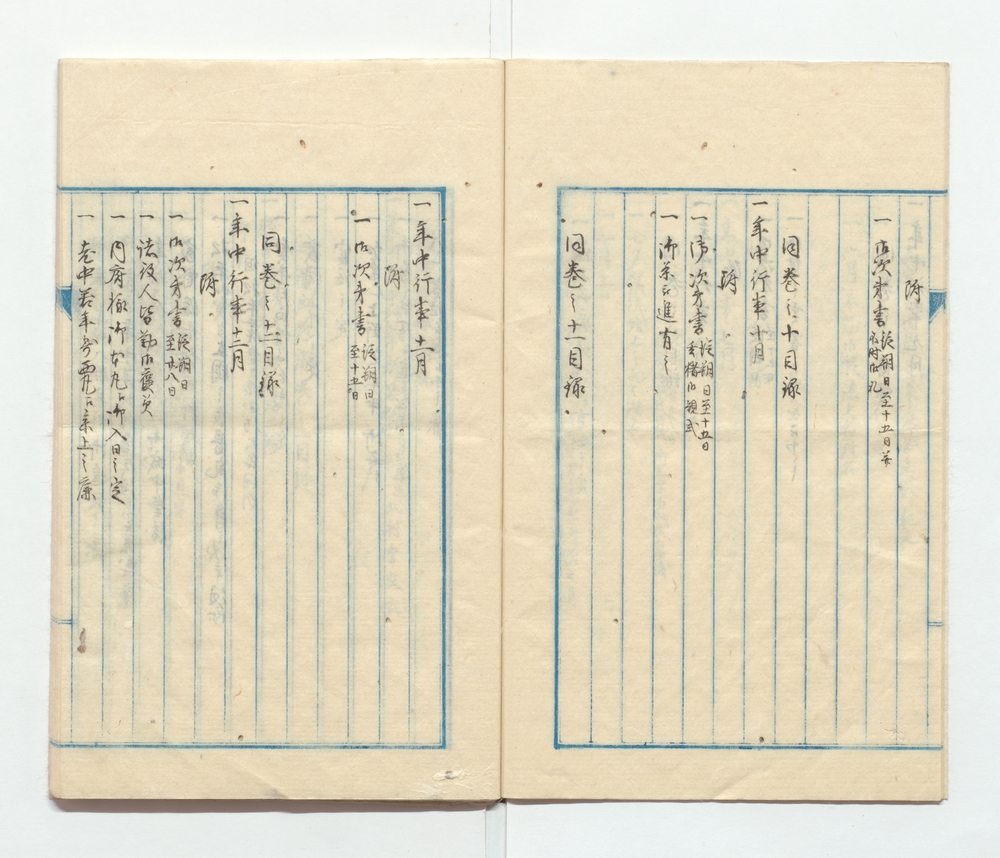 附
一 御次第書 従朔日至十五日并
不時御礼
同巻之十目録
一年中行事十月
附
一 御次第書 従朔日至十五日
玄猪御規式
一 御茶
進育之
同巻之十一目録
一年中行事十一月
附
一 御次第書 従朔日
至十五日
同巻之十二目録
一年中行事十二月
附
一 御次第書 従朔日
至廿八日
一 諸役人皆勤御褒美
一 内府様御本丸江御入日之定
一 老中若年寄西丸江系上之